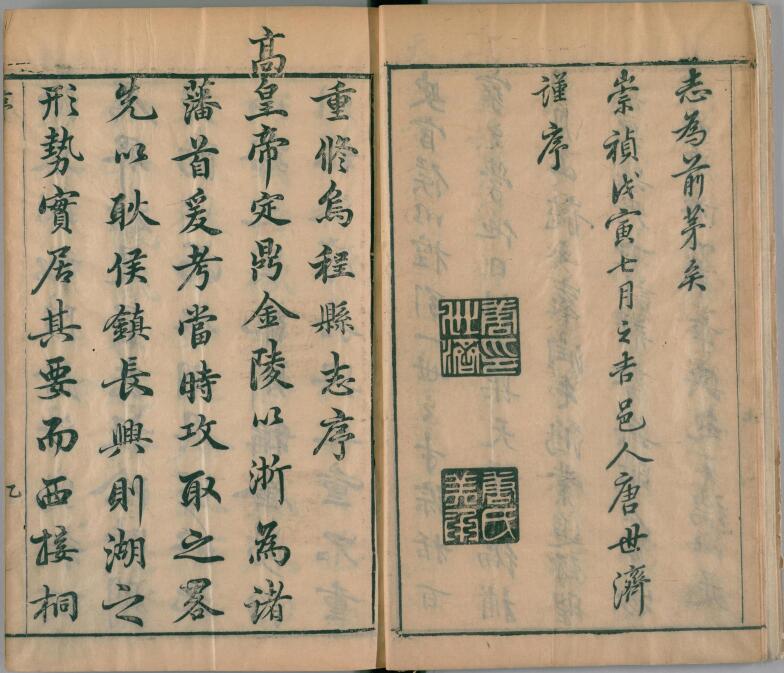 志為前茅矣
崇禎戊寅七月之吉邑人唐世濟
謹序
唐印世濟
唐氏美承
重修烏程縣志序
高皇帝定鼎金陵以浙為諸
藩首爰考當時攻取之畧
先以耿侯鎮長興則湖之
形勢實居其要而西接桐